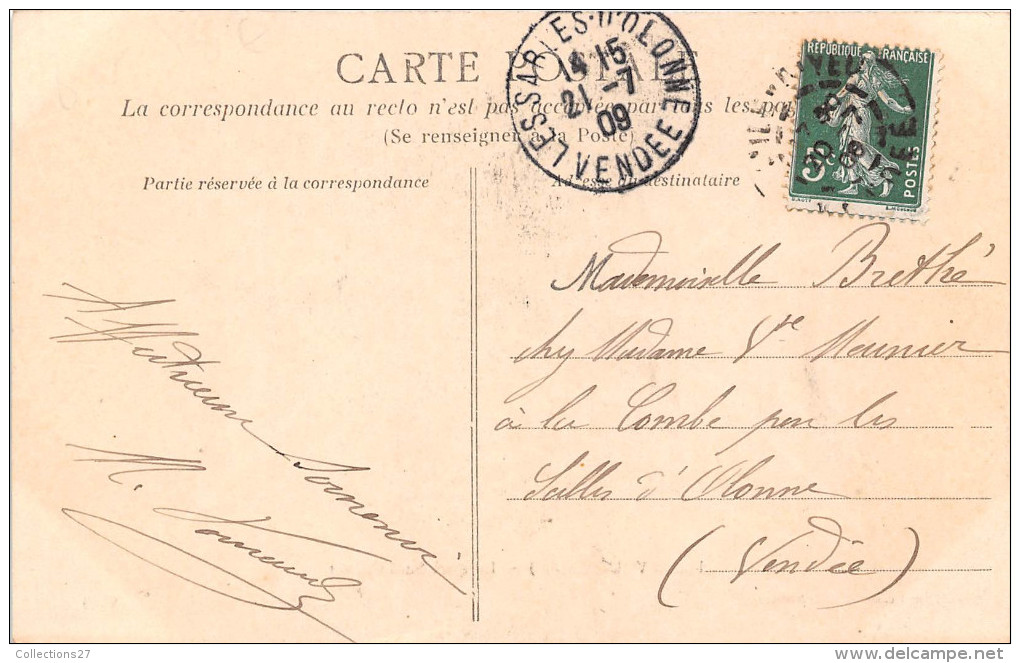 CARTE POSTALE
La correspondance au recto n'est pas acceptée par tous les pays
(Se renseigner à la Poste)
Partie réservée à la correspondance
Adresse du destinataire
LES SABLES-D'OLONNE
15
21 -7
09
VENDEE
RÉPUBLIQUE FRANÇAISE
5c
POSTES
Mademoiselle Brethé
chez Madame Vve Meunier
à la Combe par les
Salles d'Olonne
(Vendée)
Affectueux Souvenir
M.
Collections27
www.delcampe.net